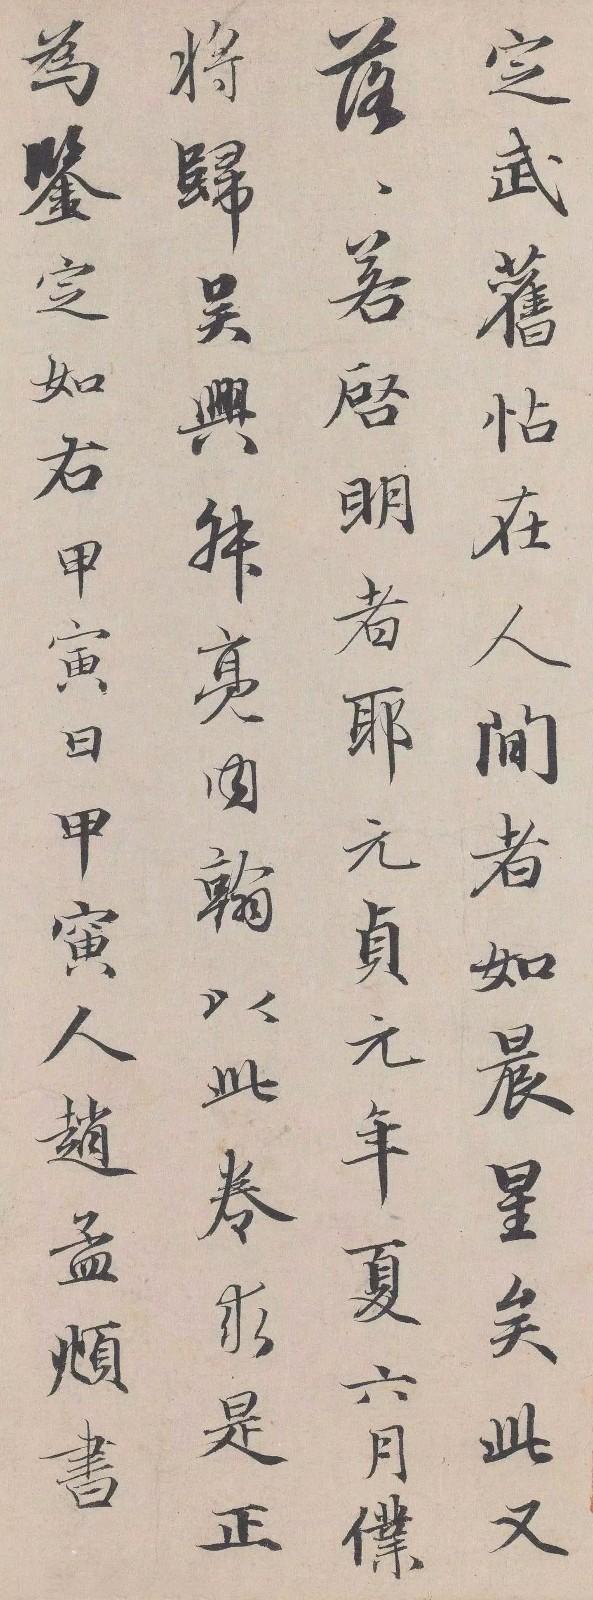 定武舊帖在人間者如晨星矣此又
落、若啓明者耶元貞元年夏六月僕
將歸吴興舛亮内翰以此卷求是正
為鑒定如右甲寅日甲寅人趙孟頫書